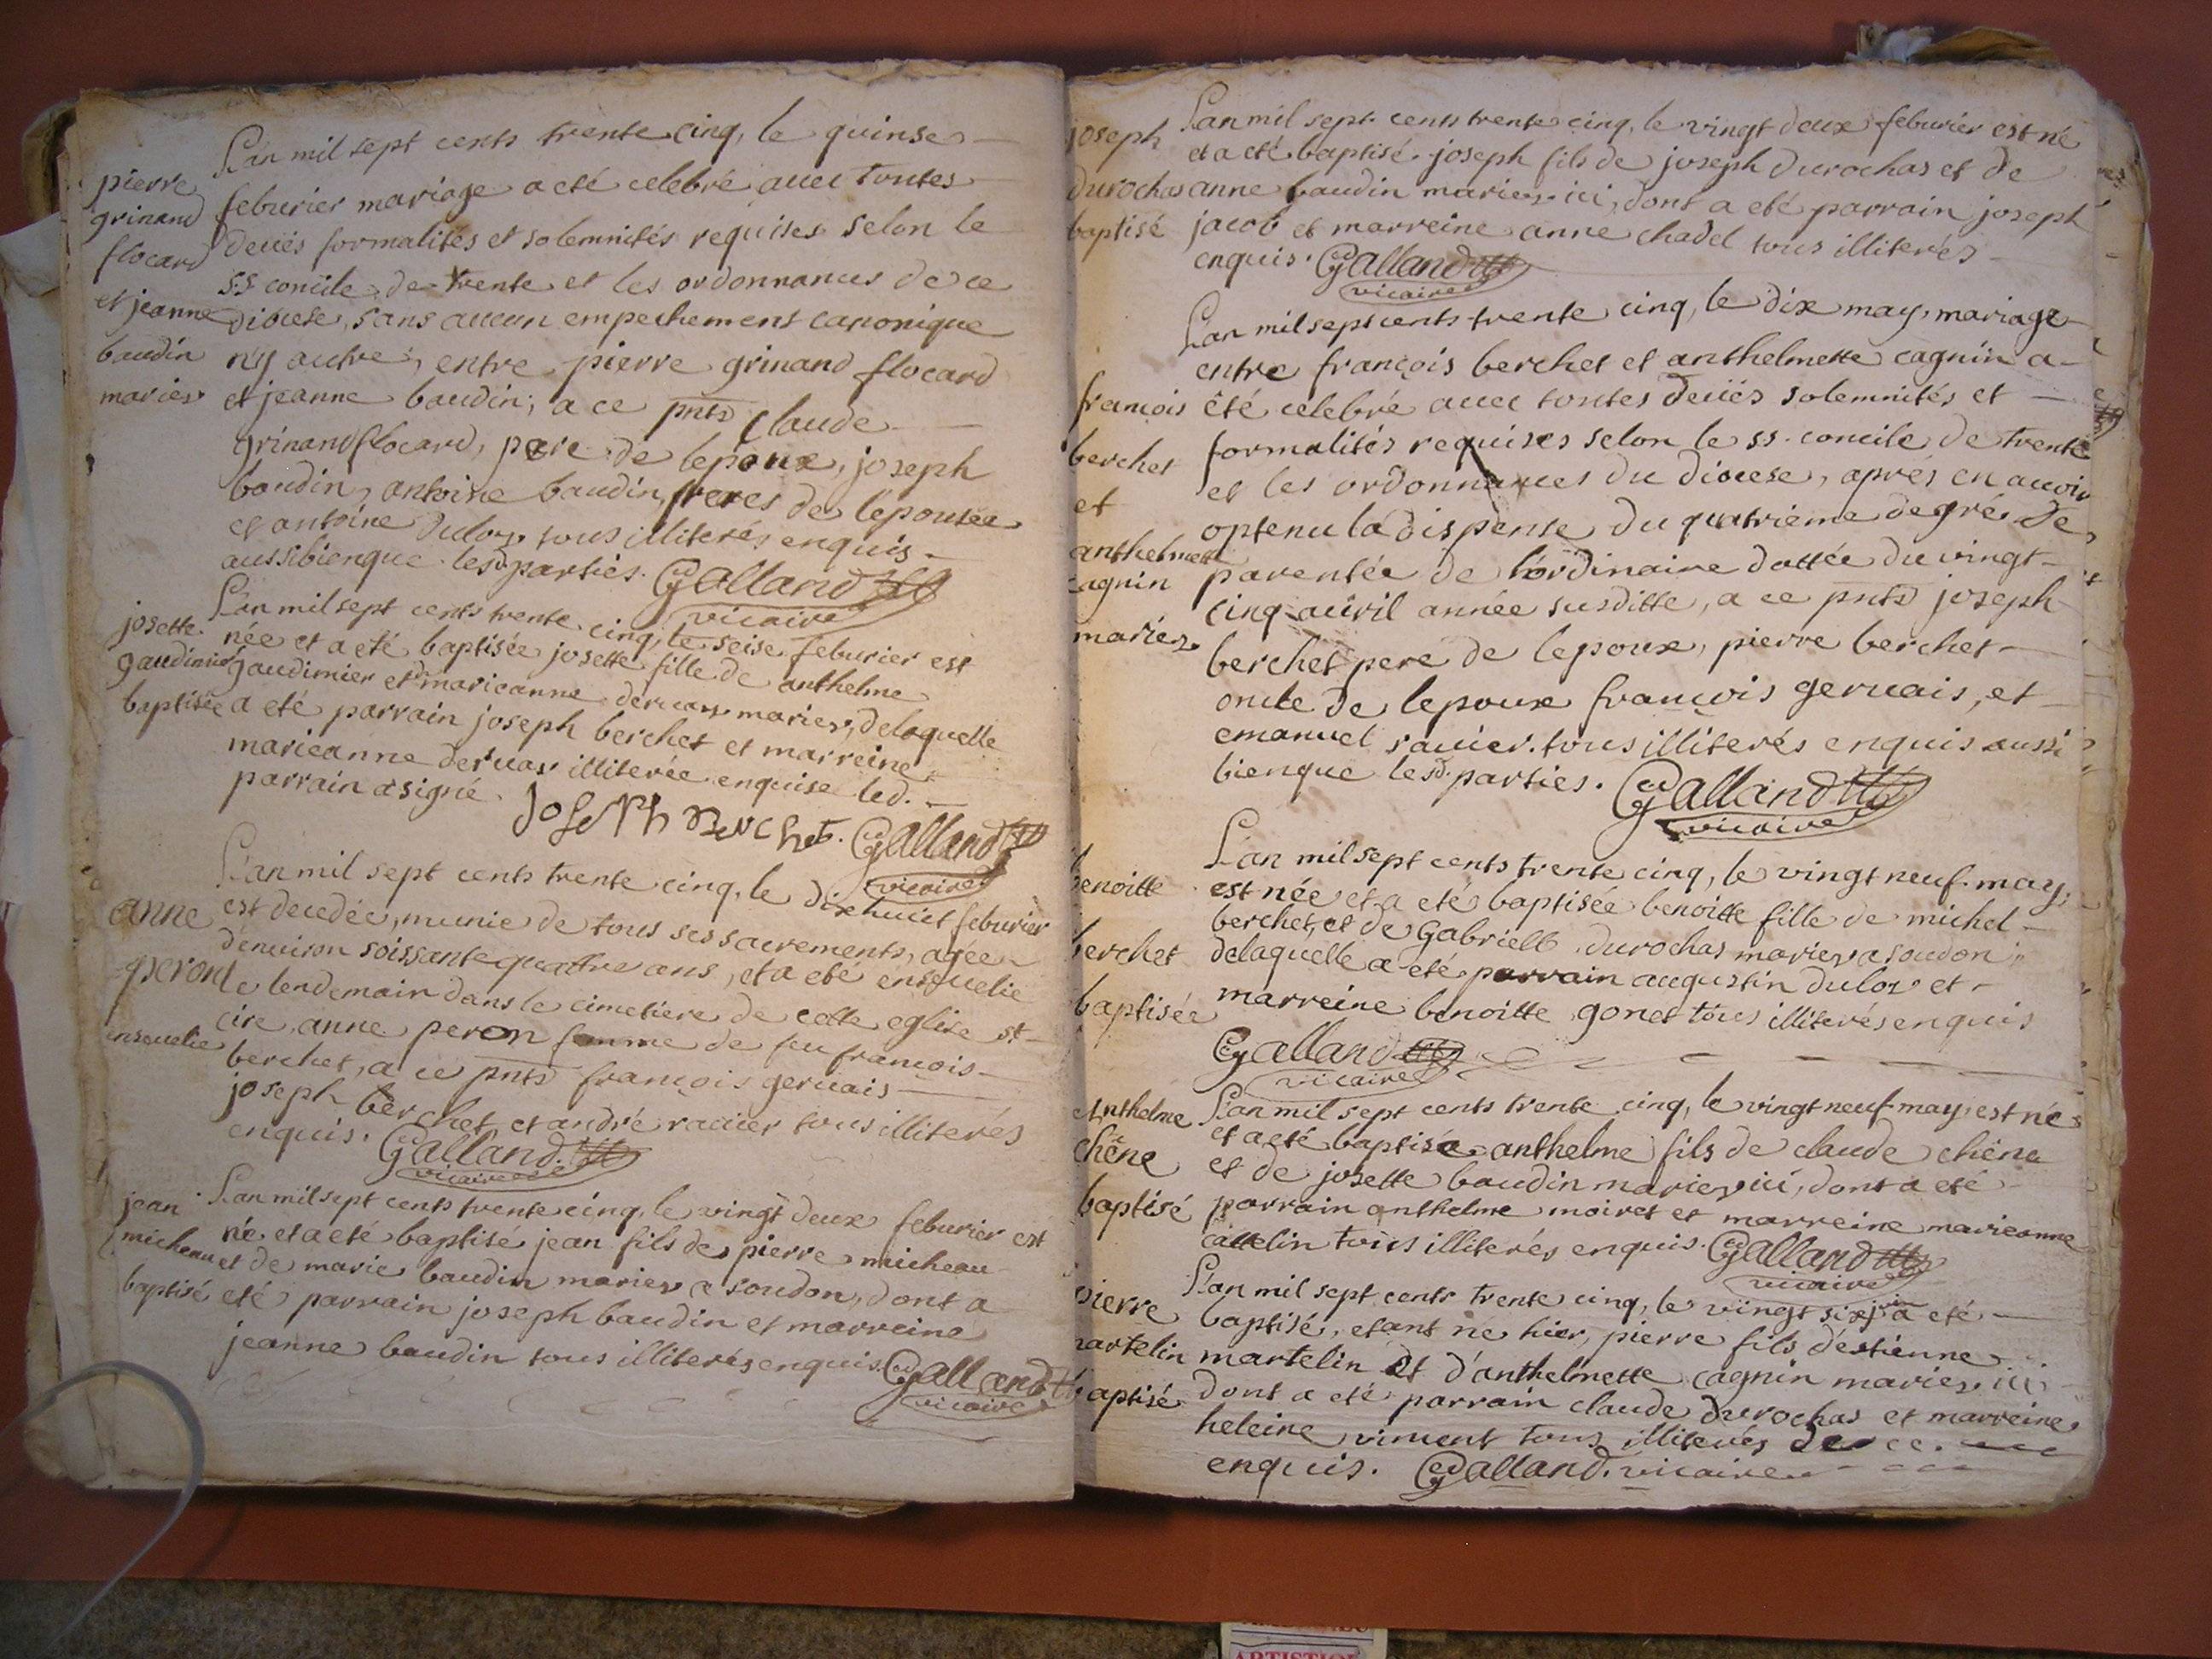 L'an mil sept cents trente cinq, le quinse
pierre
grinand
flocard
et jeanne
baudin
mariez
feburier mariage a eté celebré auec toutes
deües formalités et solemnités requises selon le
s.s concile de trente et les ordonnances de ce
diocese, sans aucun empechement canonique
n'y autre, entre pierre grinand flocard
et jeanne baudin; a ce pnts claude
grinand flocard, pere de lepoux, joseph
baudin, antoine baudin, freres de lepousée
et antoine duloz tous illiterés enquis
aussibienque lesd. parties. Galland
vicaire
josette
gaudimier
baptisée
L'an mil sept cents trente cinq, le seise feburier est
née et a eté baptisée josette fille de anthelme
gaudimier et marieanne deruaz mariez, delaquelle
a eté parrain joseph berchet et marreine
marieanne deruaz illiterée enquise led.
parrain a signé. Joseph Berchet. Galland
vicaire
anne
peron
enseuelie
L'an mil sept cents trente cinq, le dixhuict feburier
est decedée, munie de tous ses sacrements, agée
d'enuiron soissante quattre ans, et a eté enseuelie
le lendemain dans le cimetiere de cette eglise st
cire, anne peron femme de feu francois
berchet, a ce pnts françois geruais
joseph berchet et andré rauier tous illiterés
enquis. Galland
vicaire
jean
micheau
baptisé
L'an mil sept cents trente cinq, le vingt deux feburier est
né et a eté baptisé jean fils de pierre micheau
et de marie baudin mariez a soudon, dont a
eté parrain joseph baudin et marreine
jeanne baudin tous illiterés enquis. Galland
vicaire
joseph
durochas
baptisé
L'an mil sept cents trente cinq, le vingt deux feburier est né
et a eté baptisé joseph fils de joseph durochas et de
anne baudin mariez ici, dont a eté parrain joseph
jacob et marreine anne chadel tous illiterés
enquis. Galland
vicaire
françois
berchet
et
anthelmette
cagnin
mariez
L'an mil sept cents trente cinq, le dix may, mariage
entre françois berchet et anthelmette cagnin a
été celebré auec toutes deües solemnités et
formalités requises selon le ss. concile de trente
et les ordonnances du diocese, aprés en auoir
optenu la dispense du quatrieme degré de
parentée de l'ordinaire dattée du vingt
cinq auril année susditte, a ce pnts joseph
berchet pere de lepoux, pierre berchet
oncle de lepoux françois geruais, et
emanuel rauier. tous illiterés enquis aussi
bienque lesd. parties. Galland
vicaire
benoitte
berchet
baptisée
L'an mil sept cents trente cinq, le vingt neuf may,
est née et a eté baptisée benoitte fille de michel
berchet, et de Gabrielle durochas mariez a soudon
delaquelle a eté parrain augustin duloz et
marreine benoitte gonet tous illiterés enquis
Galland
vicaire
anthelme
chêne
baptisé
L'an mil sept cents trente cinq, le vingt neuf may, est né
et a eté baptisé anthelme fils de claude chêne
et de josette baudin mariez ici, dont a eté
parrain anthelme moiret et marreine marieanne
cattelin tous illiterés enquis. Galland
vicaire
pierre
martelin
baptisé
L'an mil sept cents trente cinq, le vingt six juin a eté
baptisé, etant né hier, pierre fils d'estienne
martelin et d'anthelmette cagnin mariez ici
dont a eté parrain claude durochas et marreine
heleine viment tous illiterés de ce
enquis. Galland. vicaire